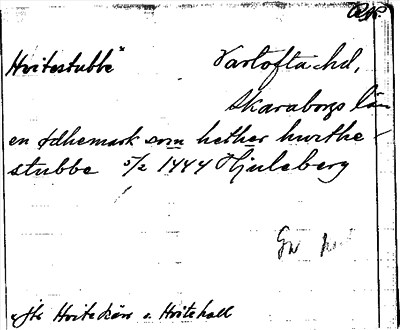 Hvitestubbe"
Vartofta hd,
Skaraborgs län
en ødhemark som hether hwithe-
stubbe 5/2 1444 Hjuleberg
jfr Hvitekärr o. Hvitehall